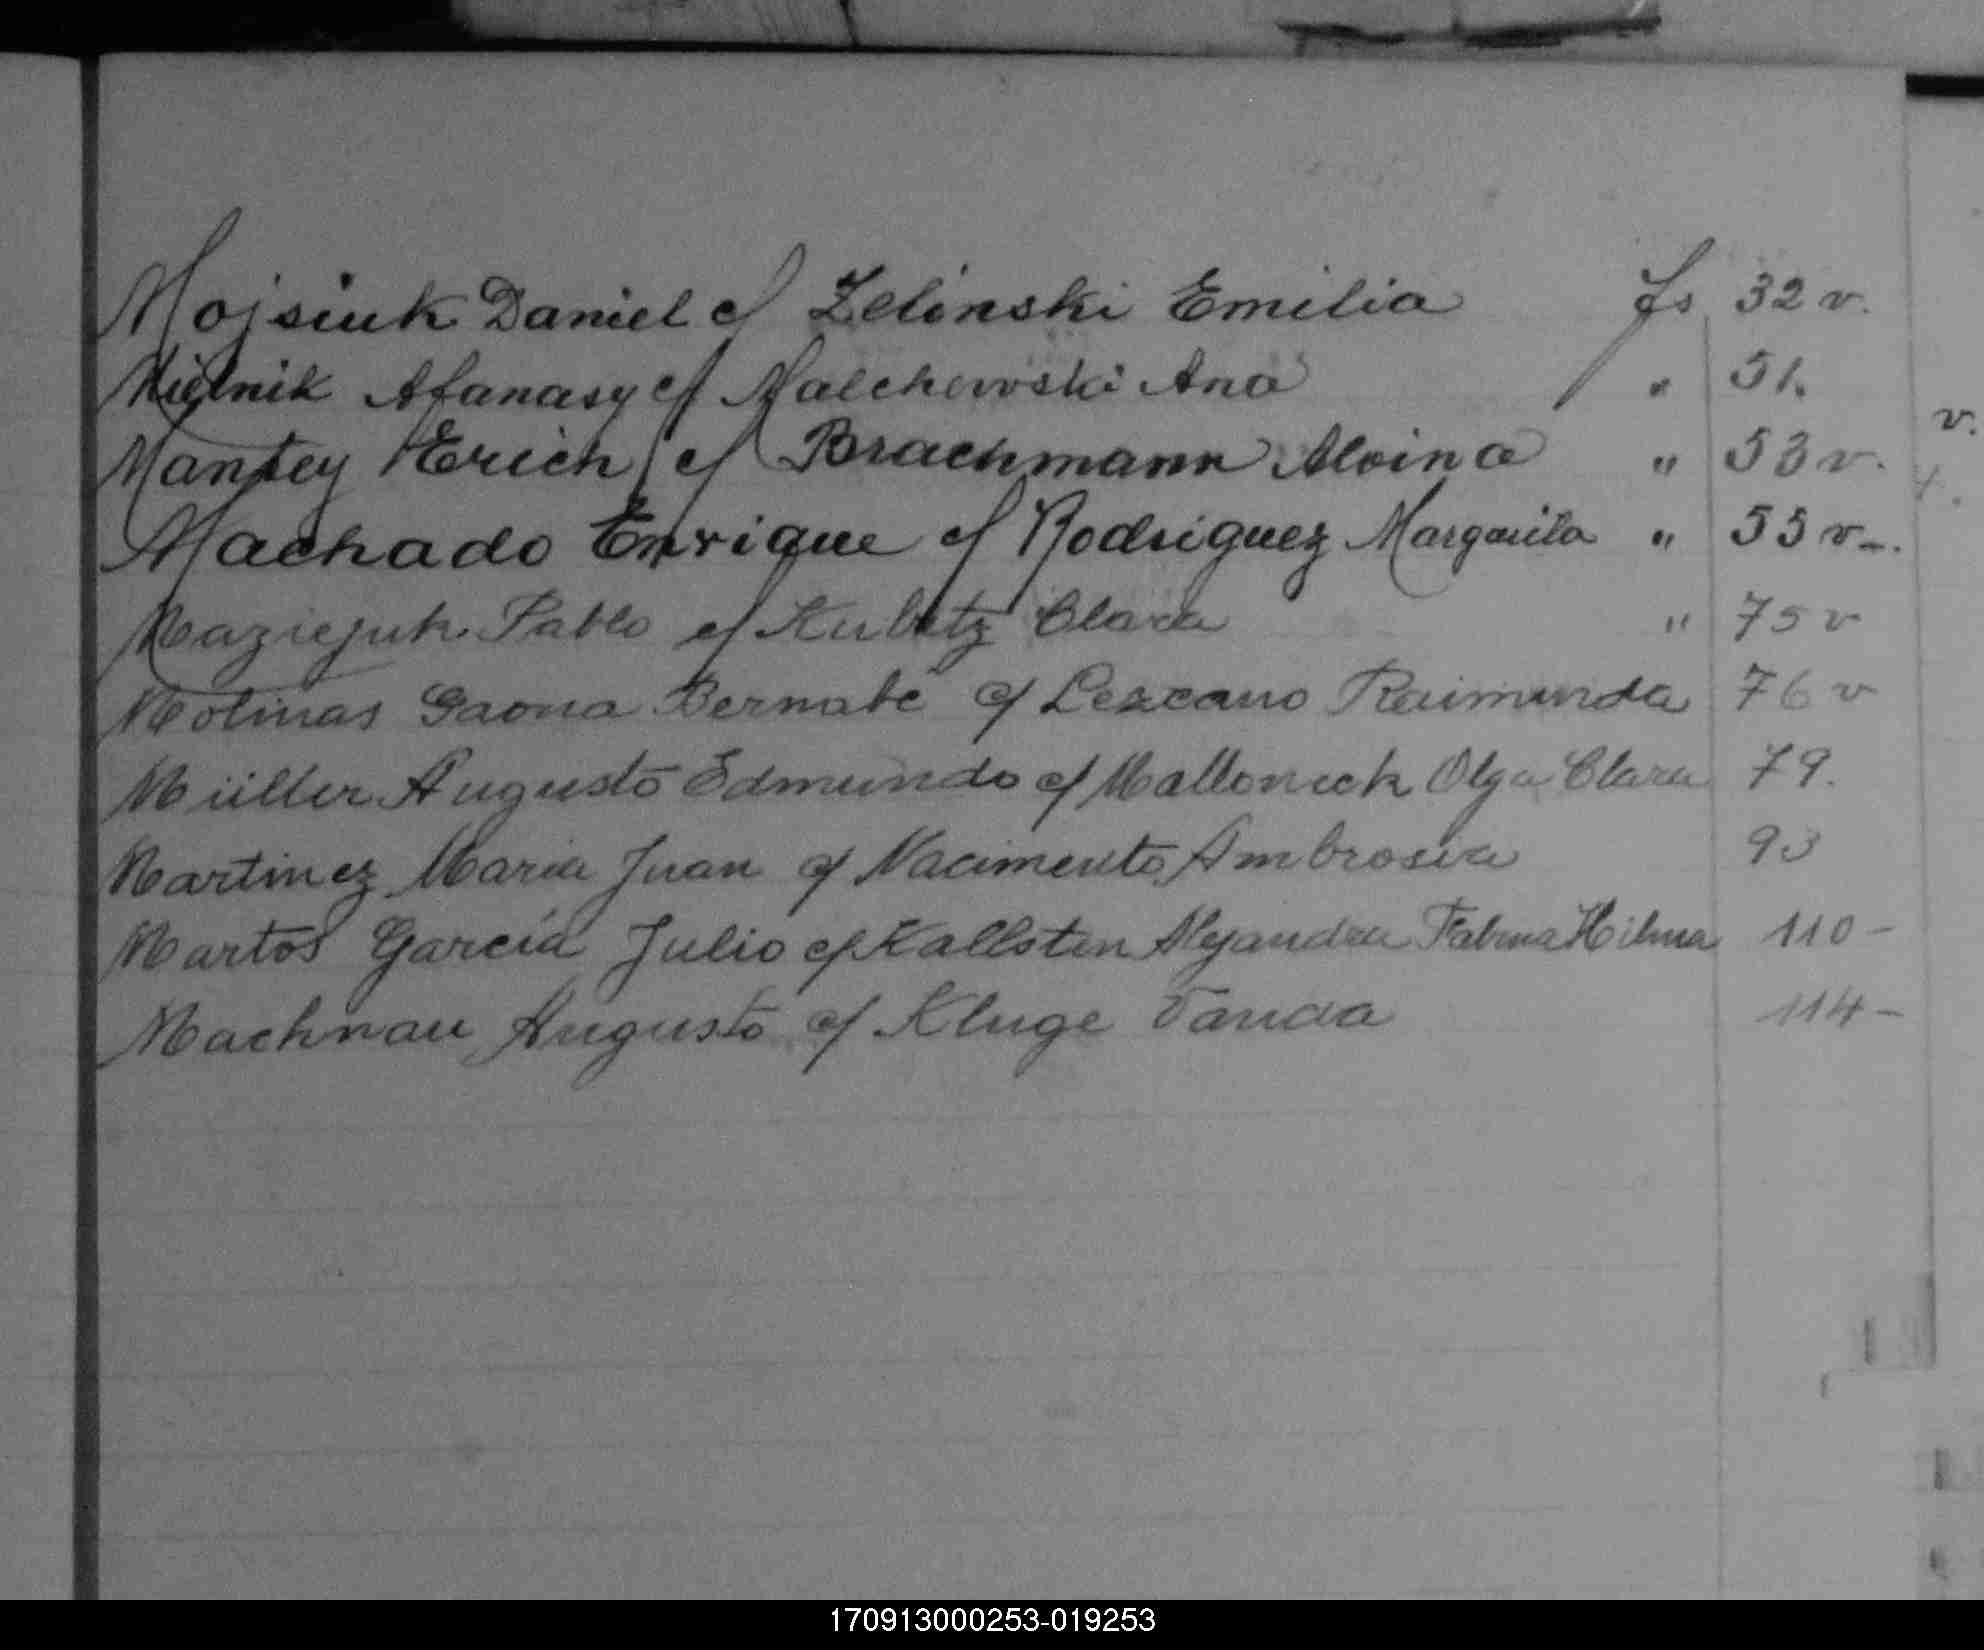 Mojsiuk Daniel c/ Zelinski Emilia fs 32 v.
Mielnik Afanasy c/ Malchewski Ana " 51.
Mantey Erich c/ Brachmann Alvina " 53 v.
Machado Enrique c/ Rodriguez Margarita " 55 v-.
Maziejuk Pablo c/ Kubitz Clara " 75 v
Molinas Gaona Bernabé c/ Lezcano Raimunda 76 v
Müller Augusto Edmundo c/ Malloneck Olga Clara 79.
Martinez Maria Juan c/ Nacimento Ambrosia 93
Martos García Julio c/ Kallsten Alejandra Hilma 110-
Machnau Augusto c/ Kluge Vanda 114-
v.
170913000253-019253